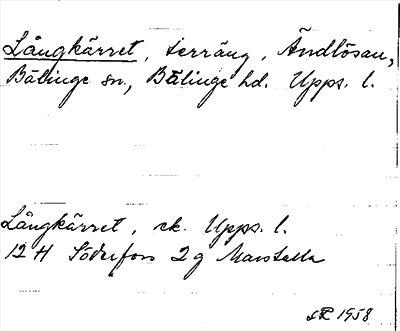 Långkärret, terräng, Ändlösan,
Bälinge sn., Bälinge hd. Upps. l.
Långkärret, ek. Upps. l.
12 H Söderfors 2 g Marstalla
1958